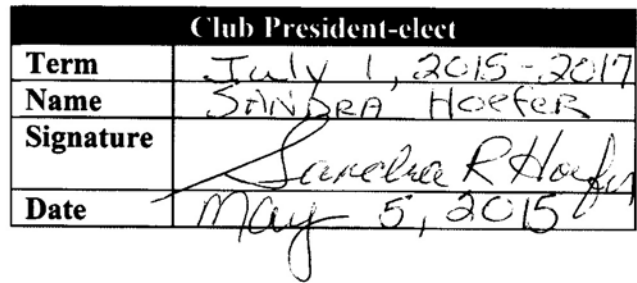 Club President-elect
Term July 1, 2015-2017
Name SANDRA HOEFER
Signature Sandra R Hoefer
Date May 5, 2015